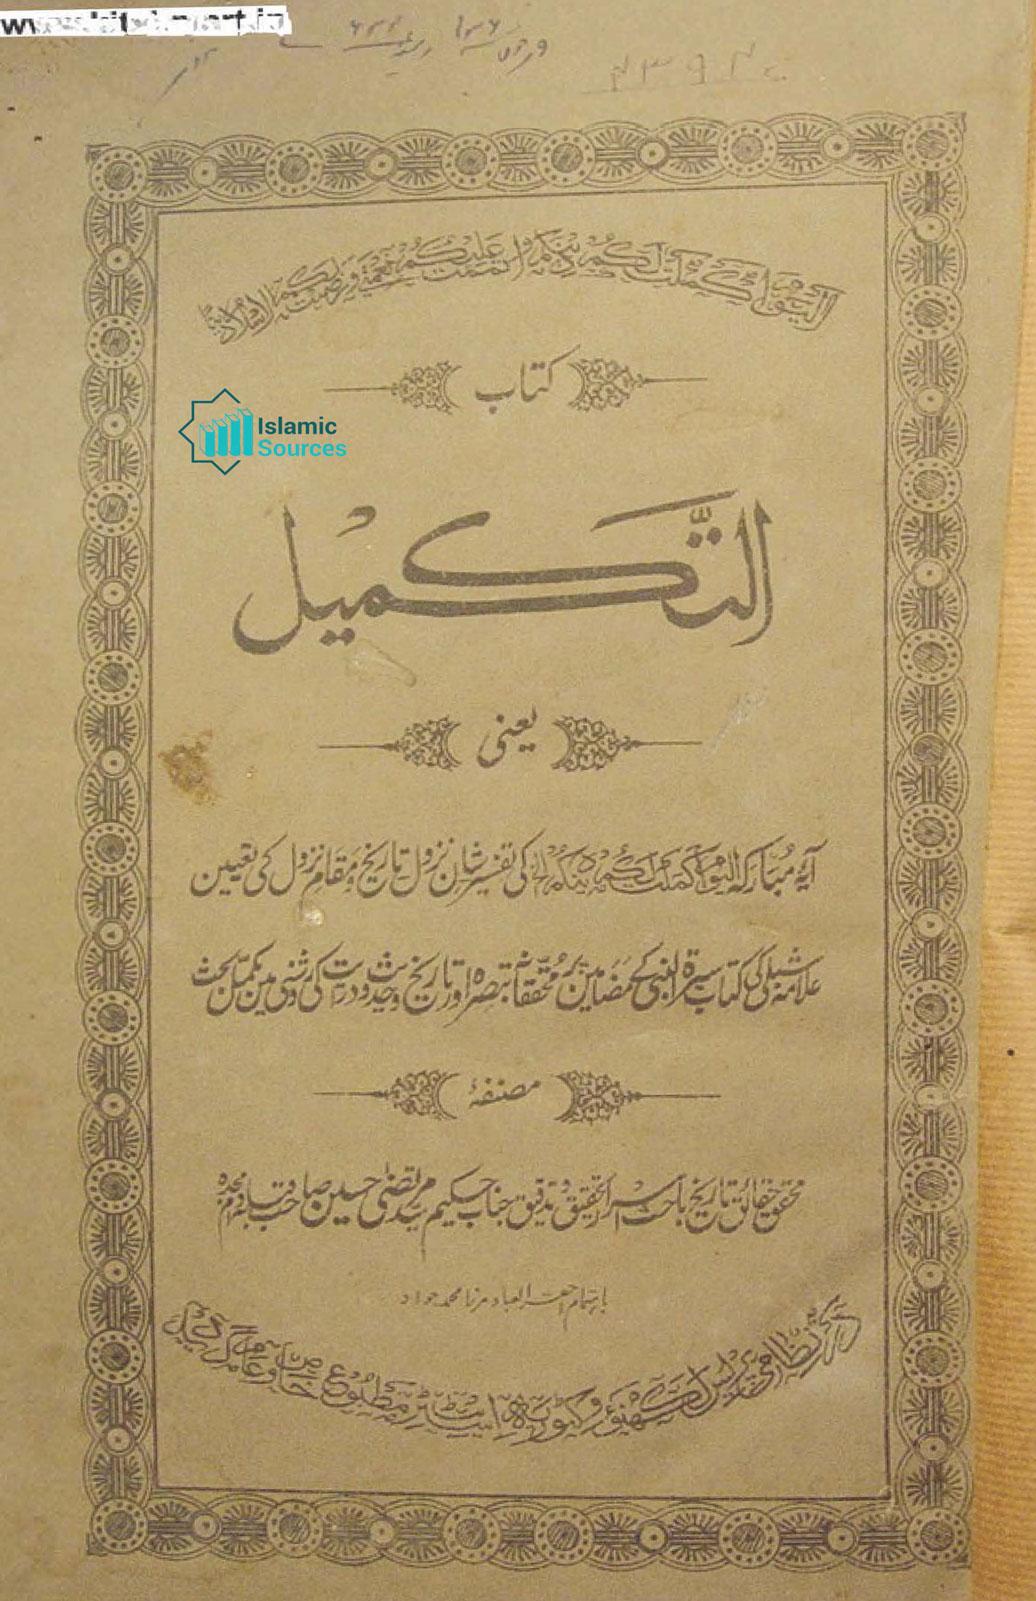 اليوم اكملت لكم دينكم واتممت عليكم نعمتي ورضيت لكم الاسلام دينا
کتاب
Islamic
Sources
التَّكميل
یعنی
آیۂ مبارکہ الیوم اکملت لکم دینکم الخ کی تفسیر شان نزول تاریخ و مقام نزول کی تعیین
علامہ شبلی کی کتاب سیرۃ النبی کے مضامین پر محققانہ تبصرہ اور تاریخ و حدیث و درایت کی روشنی میں مکمل بحث
مصنفۂ
محقق حقائق تاریخ باحث اسرار تحقیق و تدقیق جناب حکیم سید مرتضیٰ حسین صاحب قبلہ دام مجدہ
باہتمام احقر العباد مرزا محمد جواد
نظامی پریس لکھنؤ وکٹوریہ اسٹریٹ مطبوع خاص و عام